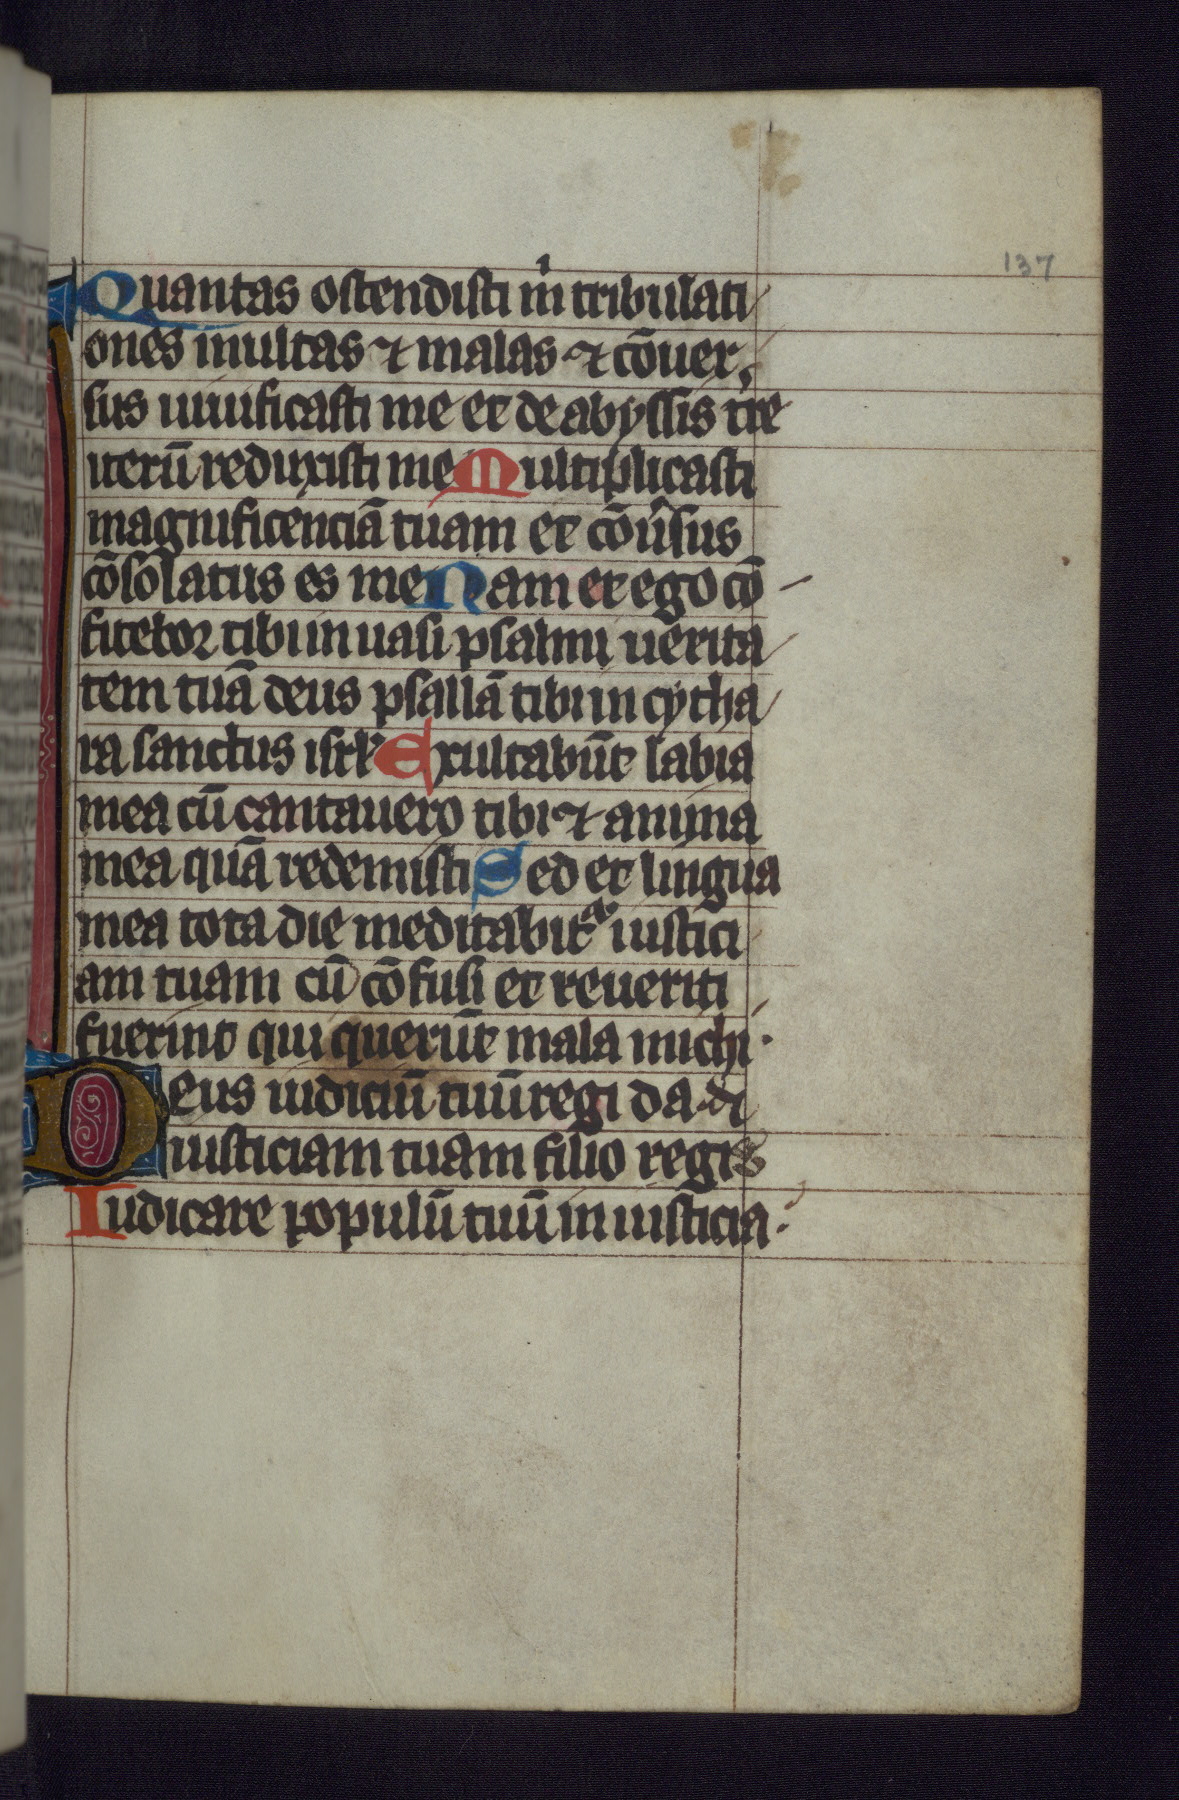 137
Quantas ostendisti mͥ tribulati
ones multas ⁊ malas ⁊ cōuer,
sus uiuificasti me et de abyssis tr̄e
iterū reduxisti me Multiplicasti
magnificenciā tuam et cōūsus
cōsolatus es me Nam et ego cō
fitebor tibi in uasi psalmi uerita
tem tuā deus psallā tibi in cytha
ra sanctus isrł Exultabūt labia
mea cū cantauero tibi ⁊ anima
mea quā redemisti Sed et lingua
mea tota die meditabitᷣ iustici
am tuam cū cōfusi et reueriti
fuerint qui querūt mala michi.
Deus iudiciū tuū regi da ⁊
iusticiam tuam filio regis
Iudicare populū tuū in iusticia